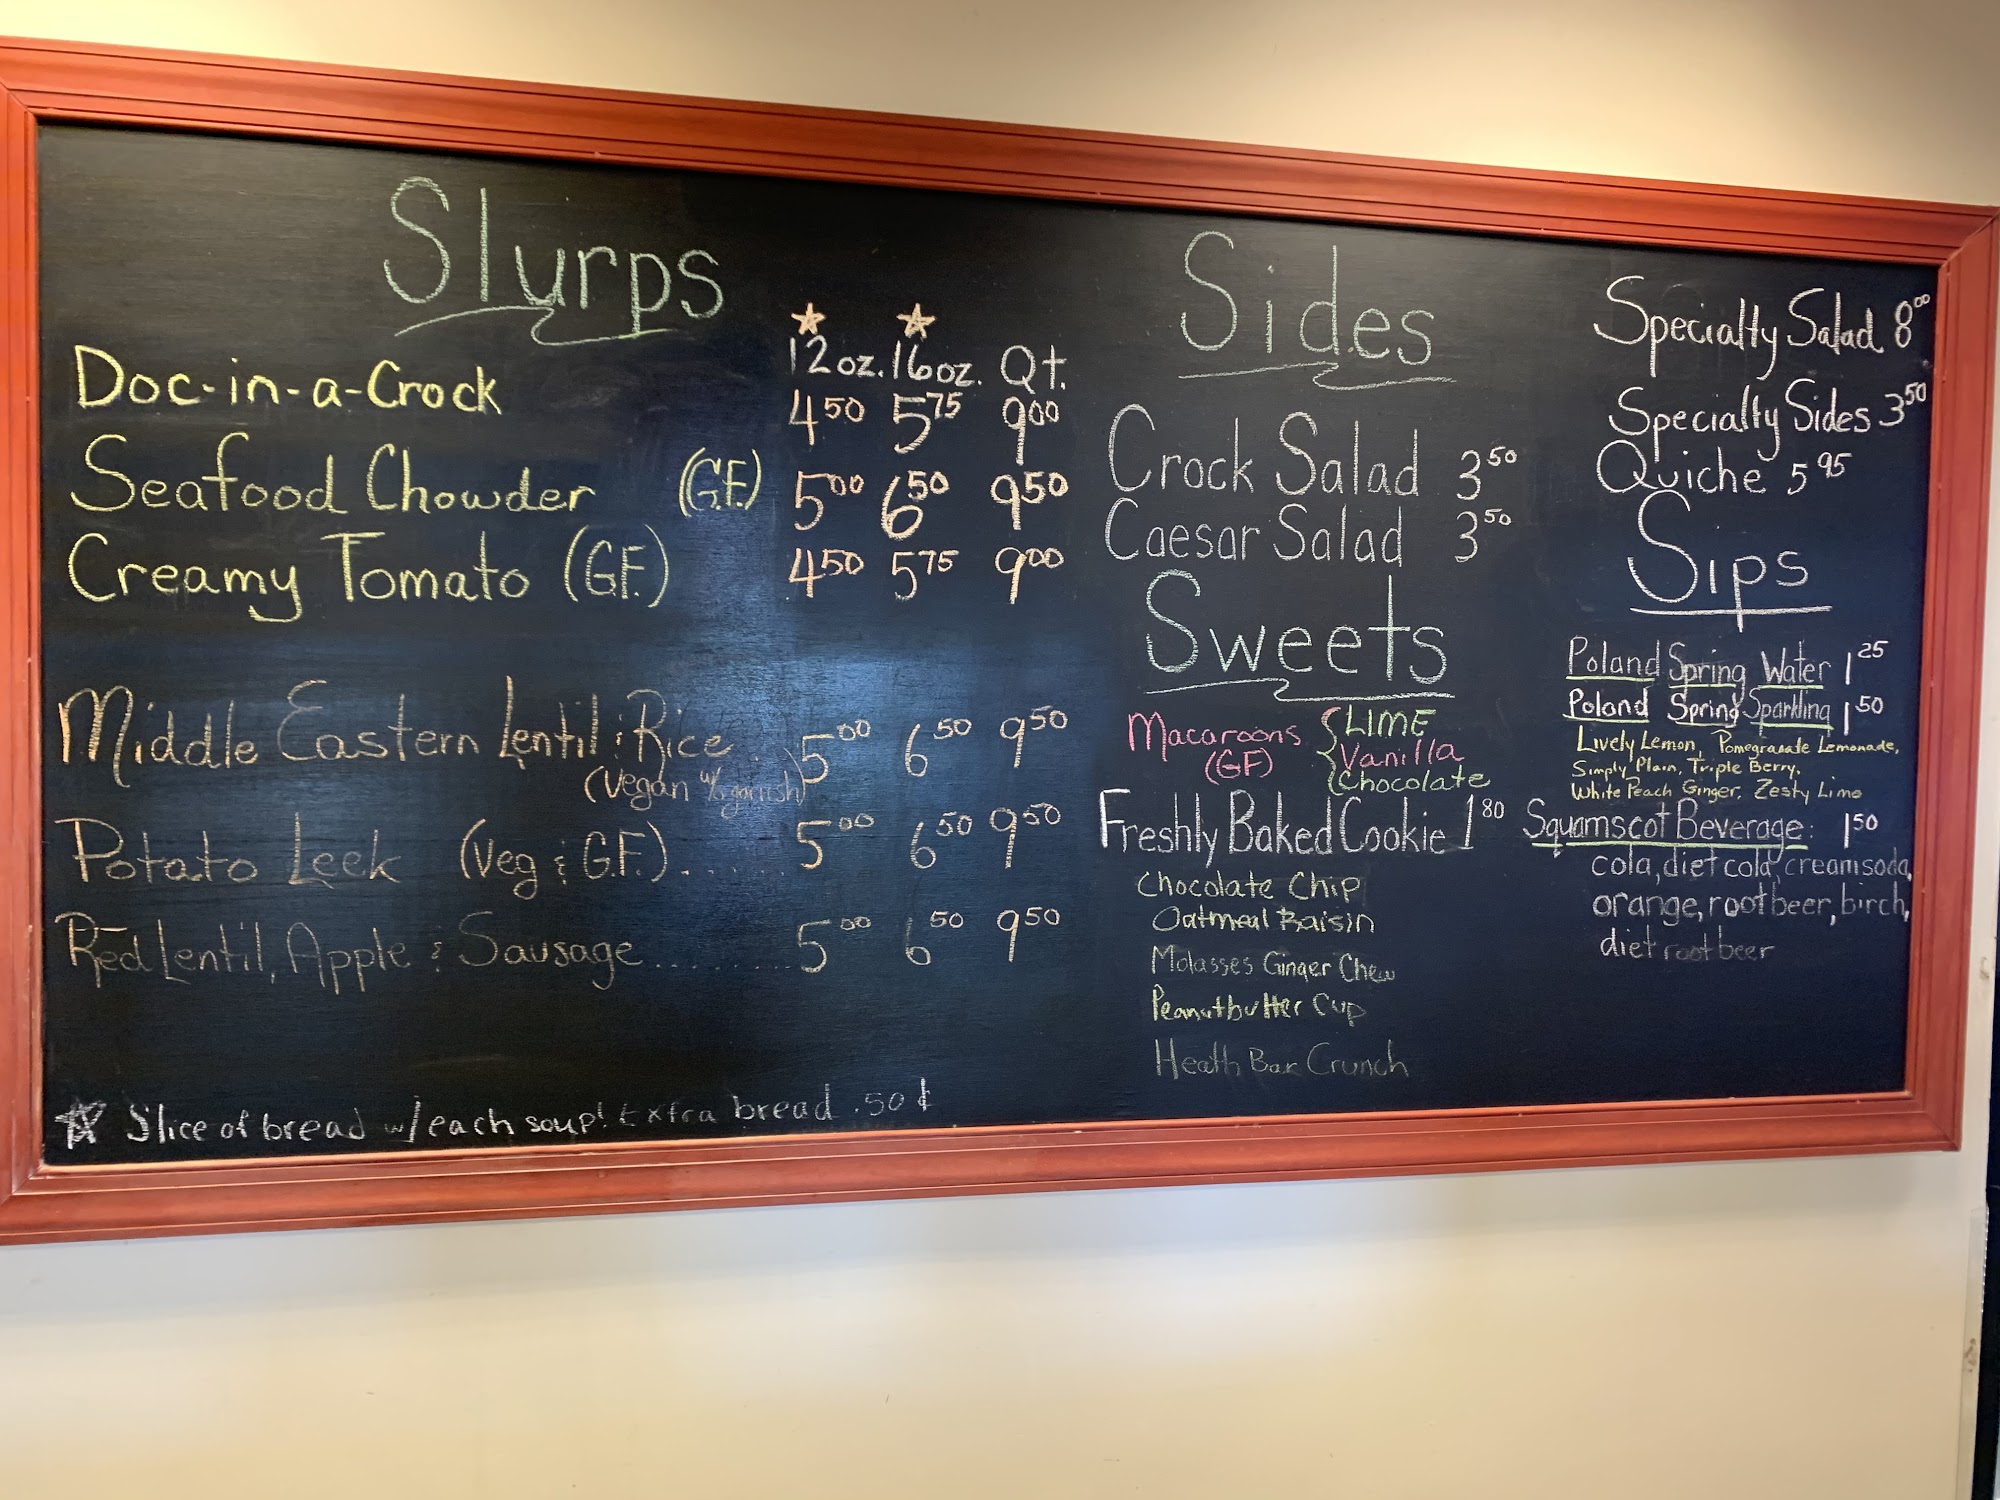 Slurps
12 oz. 16 oz. Qt.
Doc-in-a-Crock 4 50 5 75 9 00
Seafood Chowder (G.F.) 5 00 6 50 9 50
Creamy Tomato (G.F.) 4 50 5 75 9 00
Middle Eastern Lentil & Rice 5 00 6 50 9 50
(Vegan w/o garnish)
Potato Leek (Veg & G.F.)...... 5 00 6 50 9 50
Red Lentil, Apple & Sausage......... 5 00 6 50 9 50
Slice of bread w/each soup! Extra bread .50¢
Sides
Crock Salad 3 50
Caesar Salad 3 50
Specialty Salad 8 00
Specialty Sides 3 50
Quiche 5 95
Sweets
Macaroons LIME
(GF) Vanilla
Chocolate
Freshly Baked Cookie 1 80
Chocolate Chip
Oatmeal Raisin
Molasses Ginger Chew
Peanutbutter Cup
Heath Bar Crunch
Sips
Poland Spring Water 1 25
Poland Spring Sparkling 1 50
Lively Lemon, Pomegranate Lemonade,
Simply Plain, Triple Berry,
White Peach Ginger, Zesty Lime
Squamscot Beverage: 1 50
cola, diet cola, cream soda,
orange, root beer, birch,
diet root beer